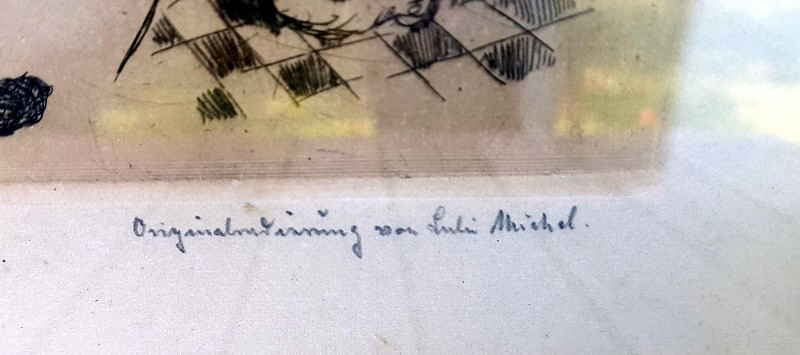 Originalradierung von Luli Michel.